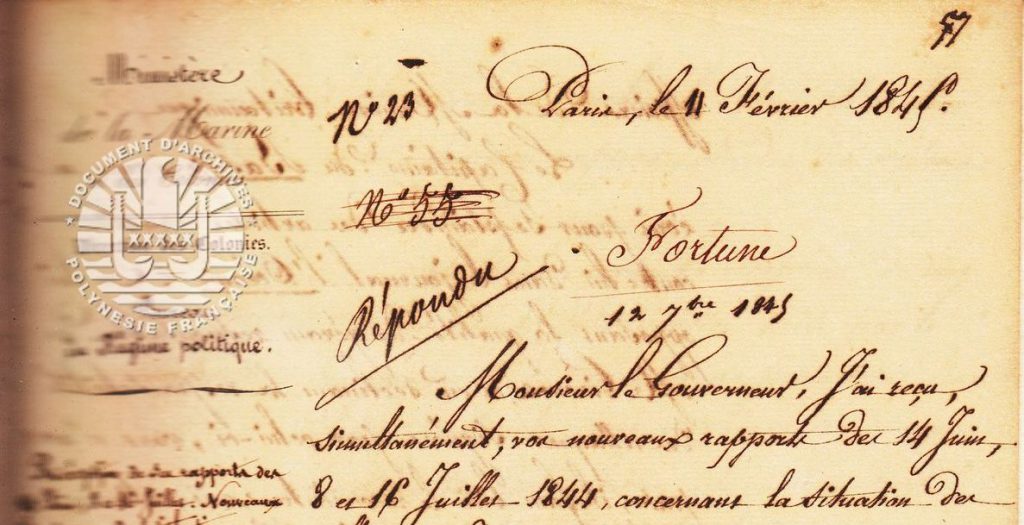 57
Ministère
de la Marine
Colonies.
Régime politique.
rapports des
Juillet. Nouveaux
DOCUMENT D'ARCHIVES
XXXXX
POLYNESIE FRANÇAISE
N° 23
Paris, le 11 Février 1845.
N° 55
Fortune
Répondu
12 7bre 1845
Monsieur le Gouverneur, J'ai reçu,
simultanément, vos nouveaux rapports des 14 Juin,
8 et 16 Juillet 1844, concernant la situation des